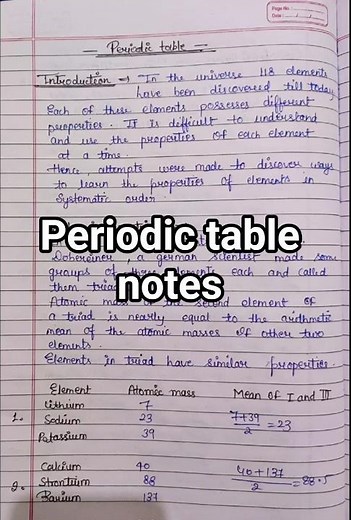 Page No.
Date:
Periodic table
Introduction → In the universe 118 elements
have been discovered till today
Each of these elements possesses different
properties. It is difficult to understand
and use the properties of each element
at a time.
Hence, attempts were made to discover ways
to learn the properties of elements in
systematic order.
Periodic table
notes
Dobereiner, a german scientist made some
groups of three elements each and called
them triads
Atomic mass of the second element of
a triad is nearly equal to the arithmetic
mean of the atomic masses of other two
elements.
Elements in triad have similar properties.
Element Atomic mass Mean of I and III
1. Lithium 7
Sodium 23 7+39/2 = 23
Potassium 39
2. Calcium 40
Strontium 88 40+137/2 = 88.5
Barium 137